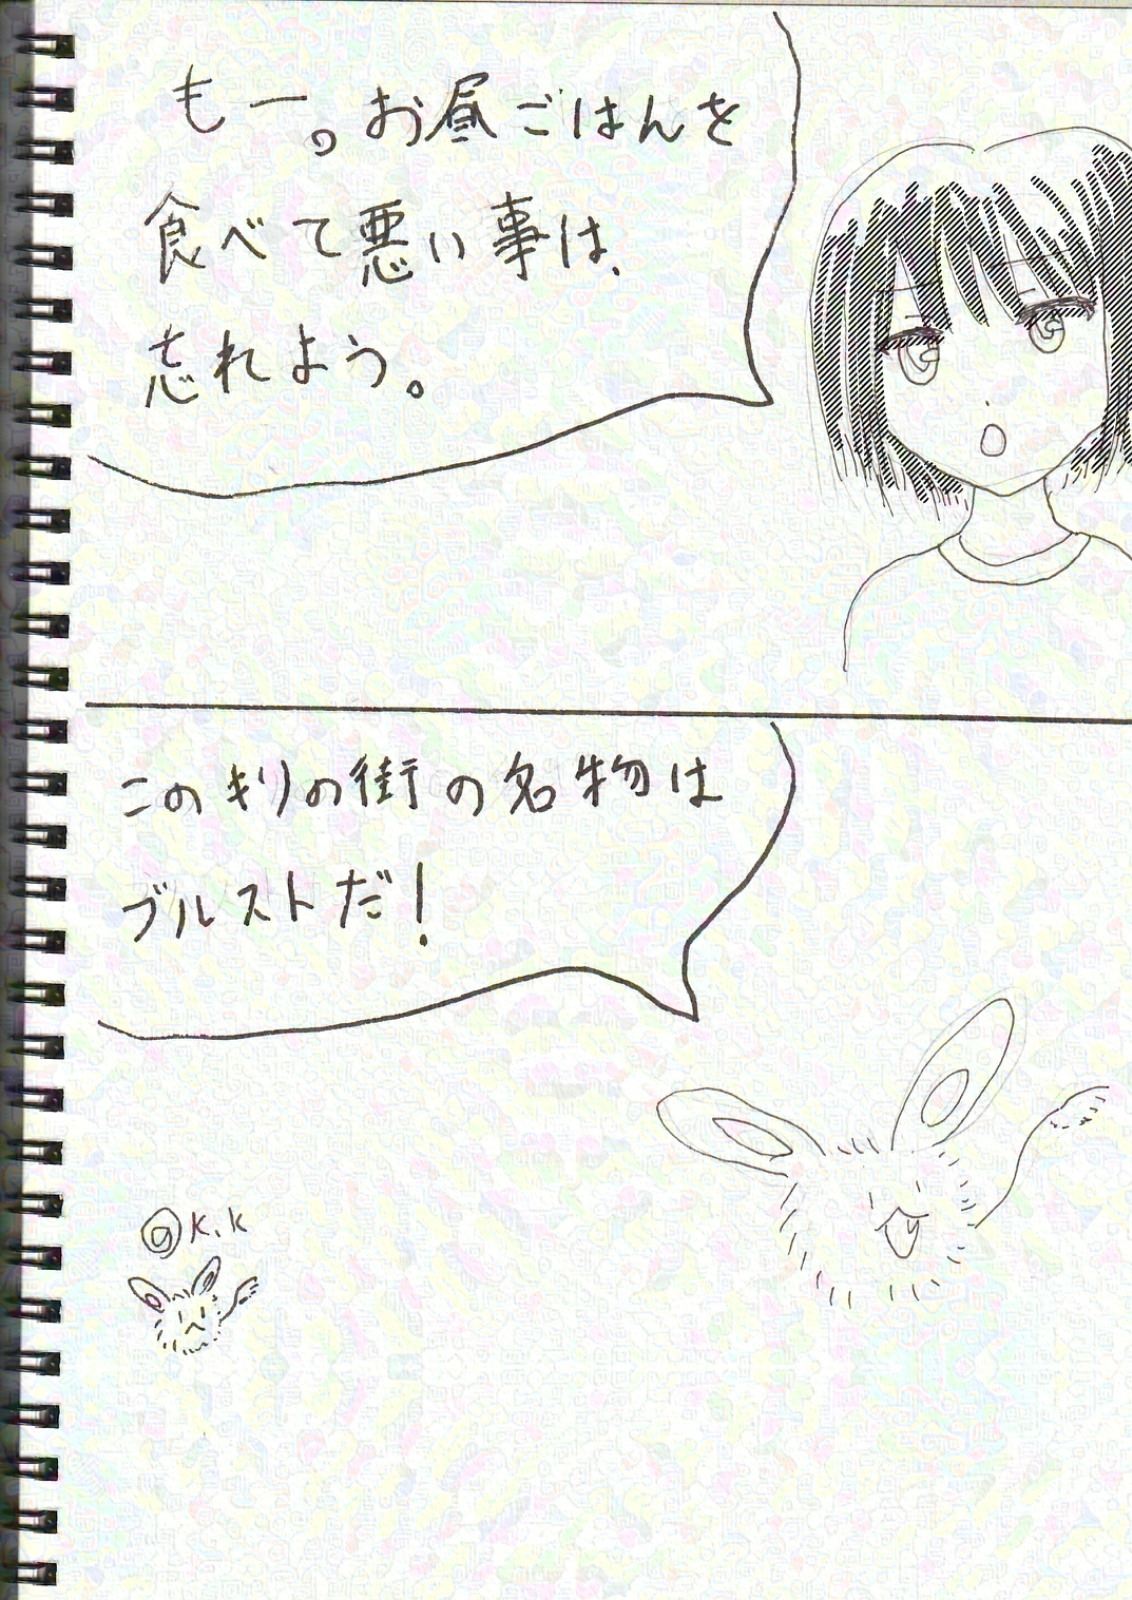 もー。お昼ごはんを
食べて悪い事は、
忘れよう。
このキリの街の名物は
ブルストだ!
@K.K